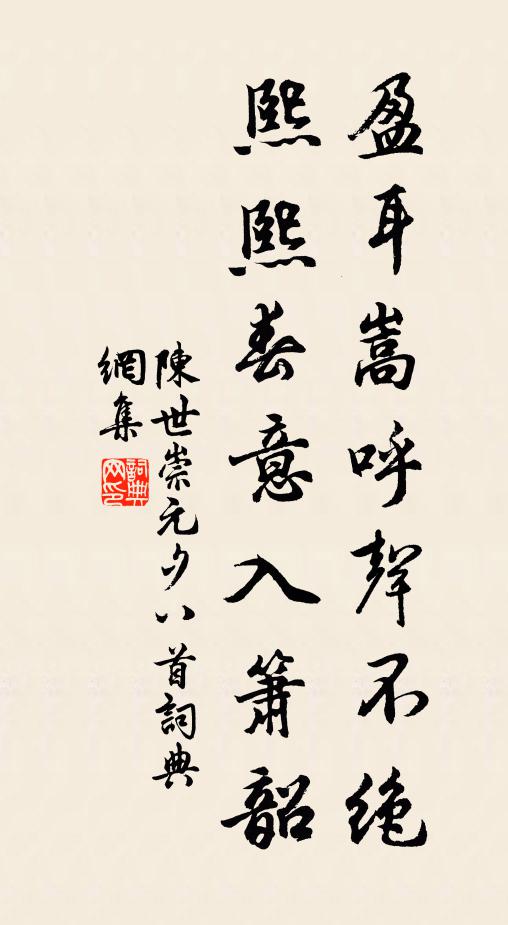 盈耳嵩呼聲不絶
熙熙春意入簫韶
陳世崇元夕八首詞典
網集
詞典
网印